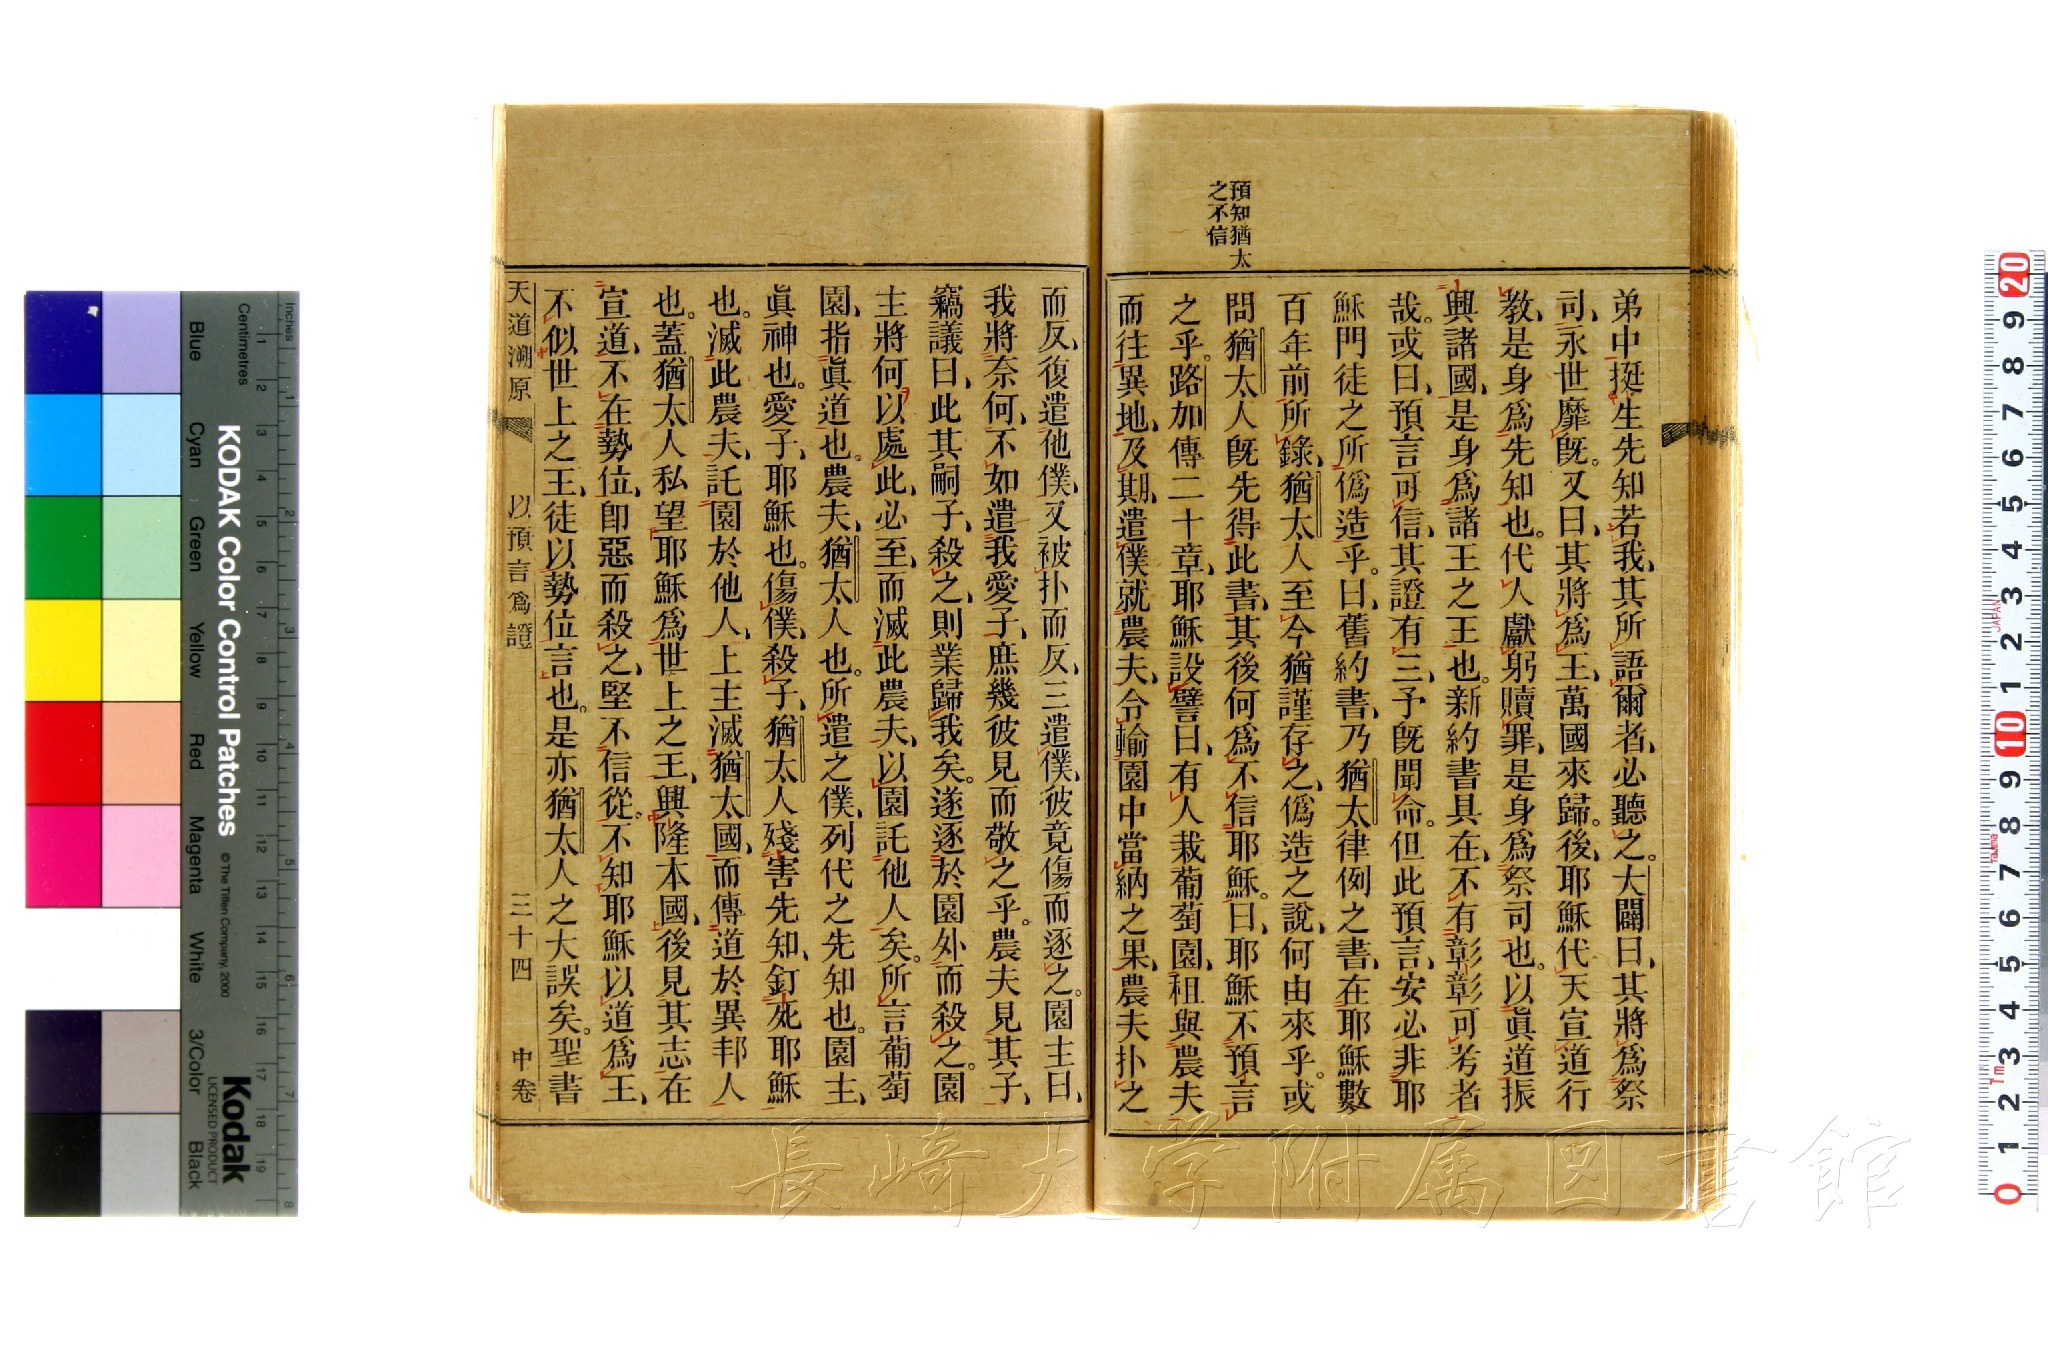 預知猶太
之不信
弟中挺生先知若我、其所語爾者、必聽之。大闢曰、其將爲祭
司、永世靡旣。又曰、其將爲王、萬國來歸。後、耶穌代天宣道行
教、是身爲先知也。代人獻躬贖罪、是身爲祭司也。以眞道振
興諸國、是身爲諸王之王也。新約書具在、不有彰彰可考者
哉。或曰、預言可信、其證有三、予旣聞命。但此預言、安必非耶
穌門徒之所僞造乎。曰、舊約書、乃猶太律例之書、在耶穌數
百年前所錄、猶太人至今猶謹存之、僞造之說、何由來乎。或
問猶太人旣先得此書、其後何爲不信耶穌。曰、耶穌不預言
之乎。路加傳二十章、耶穌設譬曰、有人栽葡萄園、租與農夫
而往異地、及期、遣僕就農夫、令輸園中當納之果、農夫扑之
而反、復遣他僕、又被扑而反、三遣僕、彼竟傷而逐之。園主曰、
我將奈何、不如遣我愛子、庶幾彼見而敬之乎。農夫見其子、
竊議曰、此其嗣子、殺之、則業歸我矣。遂逐於園外而殺之。園
主將何以處此、必至、而滅此農夫、以園託他人矣。所言葡萄
園、指眞道也。農夫、猶太人也。所遣之僕、列代之先知也。園主、
眞神也。愛子、耶穌也。傷僕、殺子、猶太人殘害先知、釘死耶穌
也。滅此農夫、託園於他人、上主滅猶太國、而傳道於異邦人
也。蓋猶太人私望耶穌爲世上之王、興隆本國、後見其志在
宣道、不在勢位、卽惡而殺之、堅不信從。不知耶穌以道爲王、
不似世上之王、徒以勢位言也。是亦猶太人之大誤矣。聖書
天道溯原 以預言爲證 三十四 中卷
KODAK Color Control Patches
© The Tiffen Company, 2000
Kodak
LICENSED PRODUCT
Inches
Centimetres
Blue Cyan Green Yellow Red Magenta White 3/Color Black
長崎大学附属図書館
JAPAN
Tajima